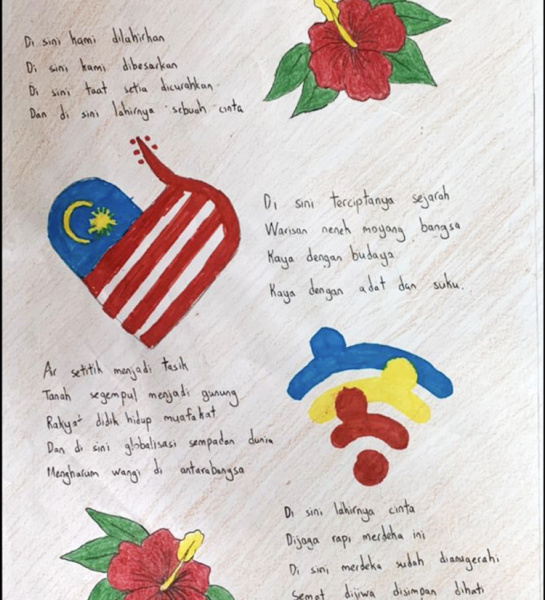 Di sini kami dilahirkan
Di sini kami dibesarkan
Di sini taat setia dicurahkan
Dan di sini lahirnya sebuah cinta
Di sini terciptanya sejarah
Warisan nenek moyang bangsa
Kaya dengan budaya
Kaya dengan adat dan suku.
Ar setitik menjadi tasik
Tanah segempul menjadi gunung
Rakyat didik hidup muafakat
Dan di sini globalisasi sempadan dunia
Mengharum wangi di antarabangsa
Di sini lahirnya cinta
Dijaga rapi merdeka ini
Di sini merdeka sudah dianugerahi
Semat dijiwa disimpan dihati